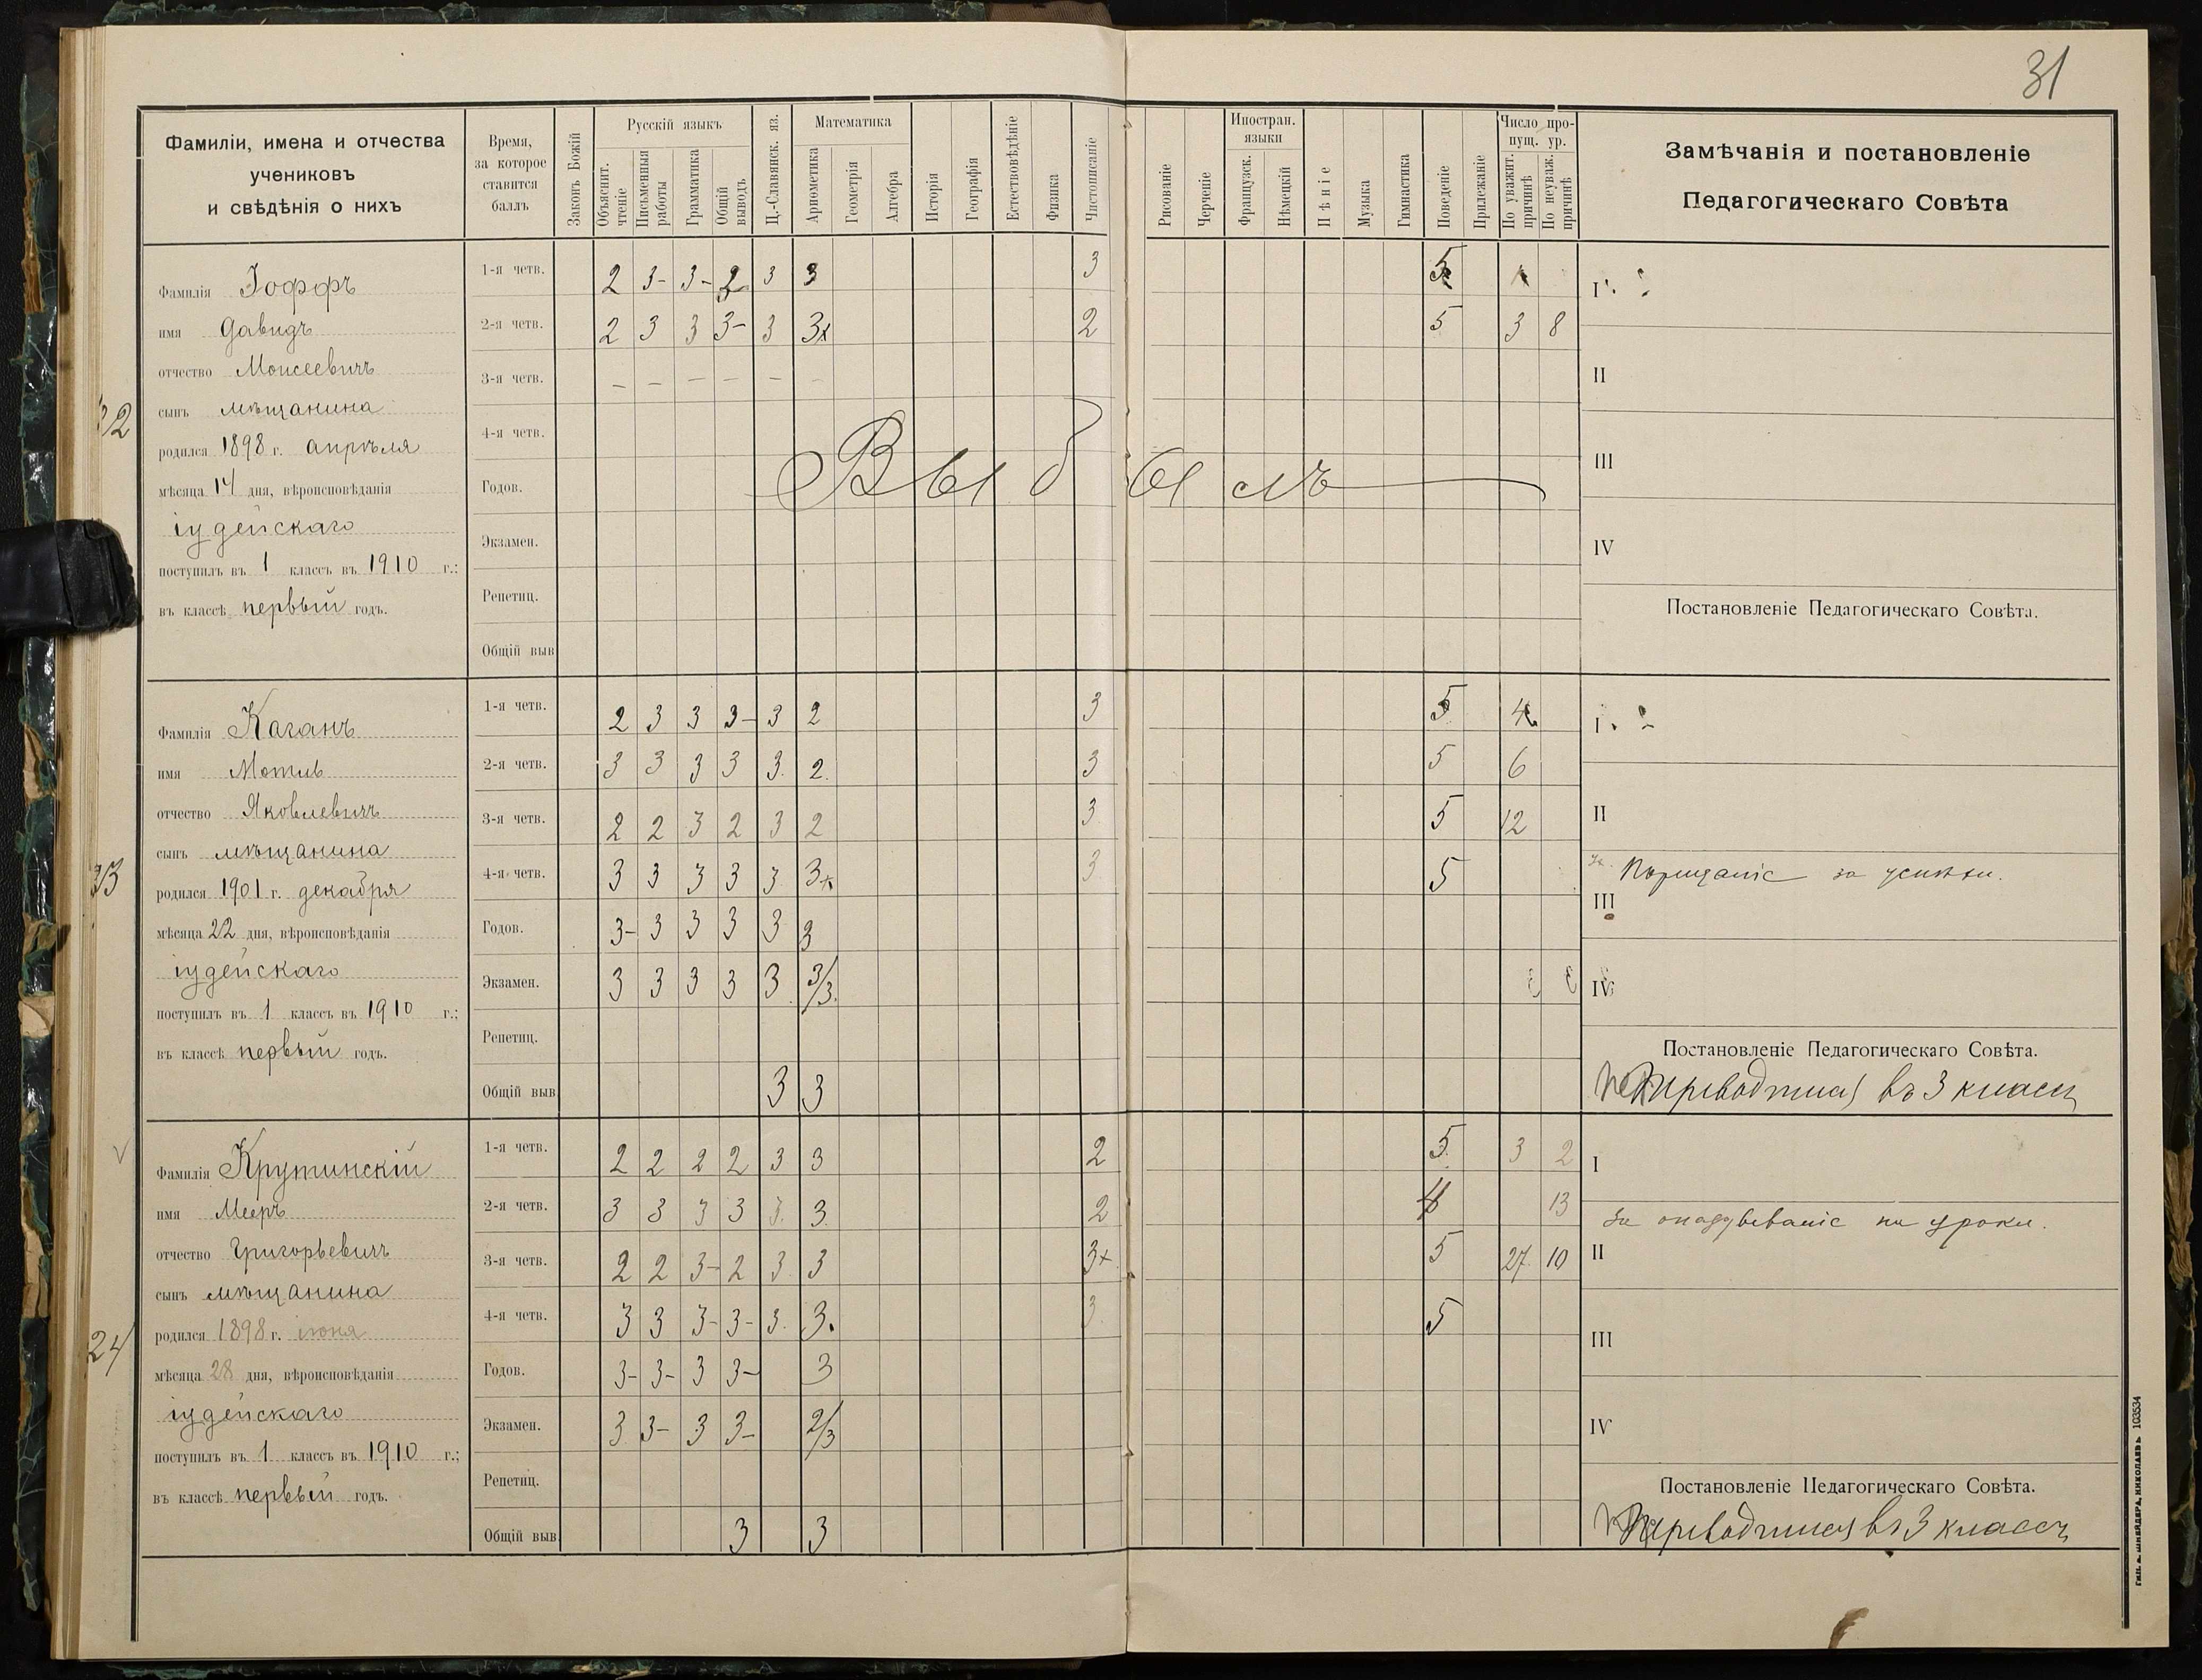 31
Фамиліи, имена и отчества
учениковъ
и свѣдѣнія о нихъ
Время,
за которое
ставится
баллъ
Законъ Божій
Русскій языкъ
Объяснит. чтеніе
Письменныя работы
Грамматика
Общій выводъ
Ц.-Славянск. яз.
Математика
Ариѳметика
Геометрія
Алгебра
Исторія
Географія
Естествовѣдѣніе
Физика
Чистописаніе
Рисованіе
Черченіе
Иностран. языки
Французск.
Нѣмецкій
Пѣніе
Музыка
Гимнастика
Поведеніе
Прилежаніе
Число пропущ. ур.
По уважит. причинѣ
По неуваж. причинѣ
Замѣчанія и постановленіе
Педагогическаго Совѣта
32
Фамилія Іоффъ
имя Давидъ
отчество Моисеевичъ
сынъ мѣщанина
родился 1898 г. апрѣля
мѣсяца 14 дня, вѣроисповѣданія
іудейскаго
поступилъ въ 1 классъ въ 1910 г.;
въ классѣ первый годъ.
1-я четв. 2 3- 3- 2 3 3 3 5
2-я четв. 2 3 3 3- 3 3x 2 5 3 8
3-я четв. – – – – – –
4-я четв.
Годов. Выбылъ
Экзамен.
Репетиц.
Общій выв
I
II
III
IV
Постановленіе Педагогическаго Совѣта.
33
Фамилія Каганъ
имя Мотль
отчество Яковлевичъ
сынъ мѣщанина
родился 1901 г. декабря
мѣсяца 22 дня, вѣроисповѣданія
іудейскаго
поступилъ въ 1 классъ въ 1910 г.;
въ классѣ первый годъ.
1-я четв. 2 3 3 3- 3 2 3 5 4
2-я четв. 3 3 3 3 3. 2. 3 5 6
3-я четв. 2 2 3 2 3 2 3 5 12
4-я четв. 3 3 3 3 3 3x 3 5
Годов. 3- 3 3 3 3 3
Экзамен. 3 3 3 3 3 3/3.
Репетиц.
Общій выв 3 3
I
II
Порицаніе за успѣхи.
III
IV
Постановленіе Педагогическаго Совѣта.
Переводится въ 3 классъ
24
Фамилія Крутинскій
имя Мееръ
отчество Григорьевичъ
сынъ мѣщанина
родился 1898 г. іюня
мѣсяца 28 дня, вѣроисповѣданія
іудейскаго
поступилъ въ 1 классъ въ 1910 г.;
въ классѣ первый годъ.
1-я четв. 2 2 2 2 3 3 2 5. 3 2
2-я четв. 3 3 3 3 3. 3. 2 4 13
3-я четв. 2 2 3- 2 3 3 3+ 5 27 10
4-я четв. 3 3 3- 3- 3. 3. 3. 5
Годов. 3- 3- 3 3- 3
Экзамен. 3 3- 3 3- 2/3
Репетиц.
Общій выв 3 3
I
За опаздываніе на уроки.
II
III
IV
Постановленіе Педагогическаго Совѣта.
Переводится въ 3 классъ
ТИП. А. ШНЕЙДЕРА, НИКОЛАЕВЪ. 103534